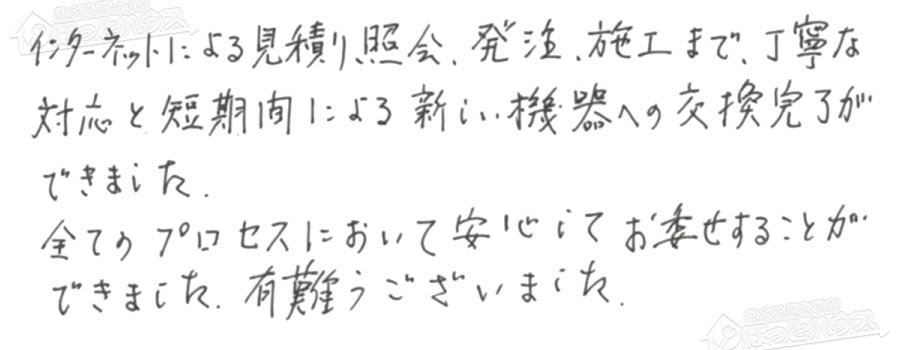 インターネットによる見積り、照会、発注、施工まで、丁寧な
対応と短期間による新しい機器への交換完了が
できました。
全てのプロセスにおいて安心してお委せすることが
できました。有難うございました。
ほっとハウス
ほっとハウス